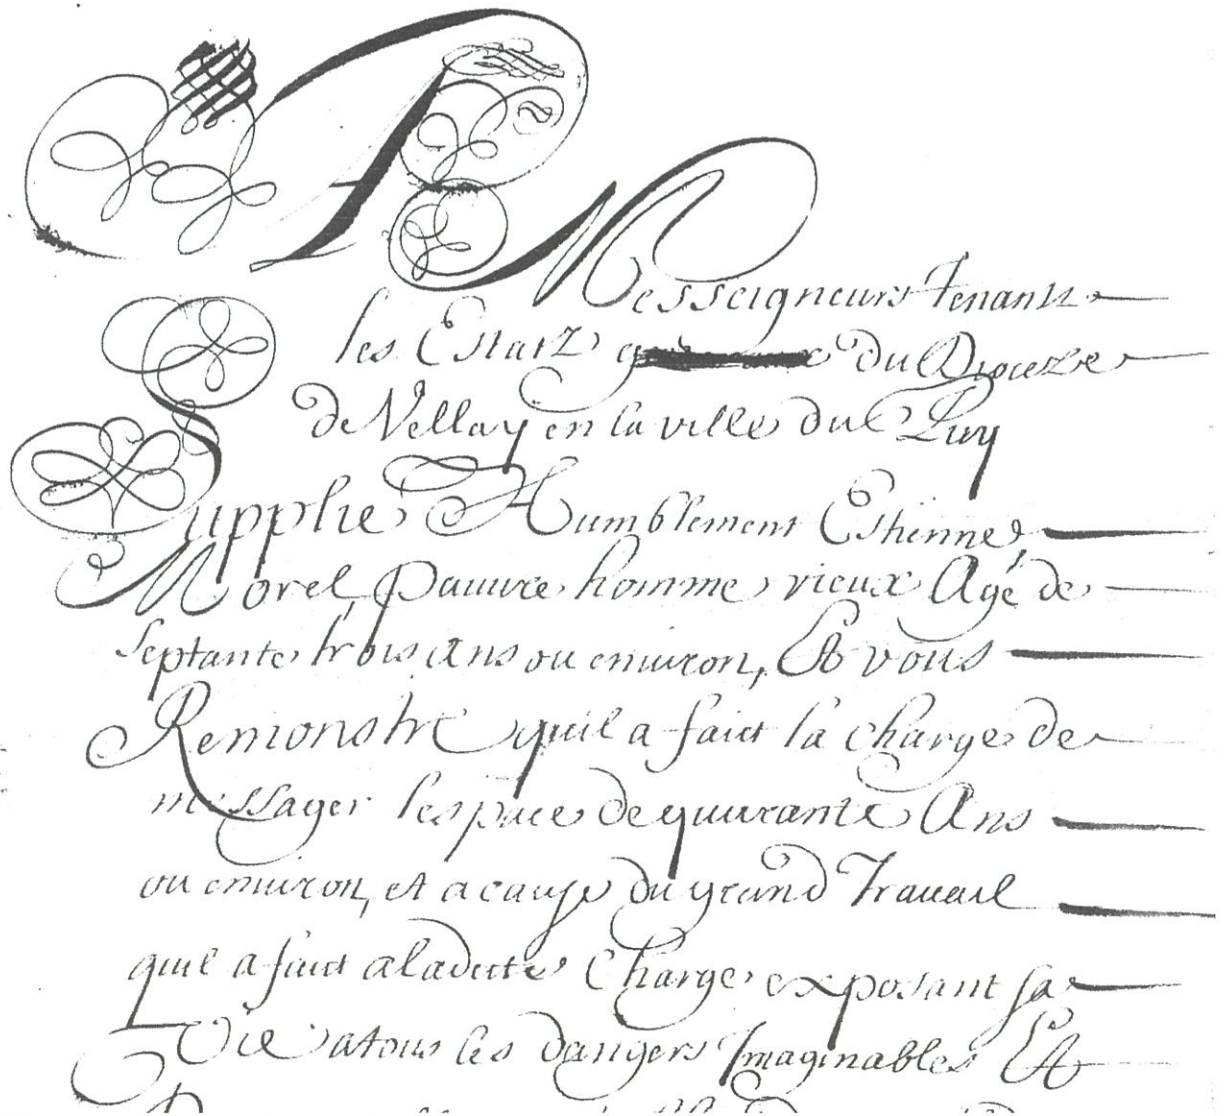 A Messeigneurs tenantz
les Estatz du Dioceze
de Vellay en la ville du Puy
Supplie Humblement Estienne
Morel, pauure homme vieux Agé de
septante trois ans ou enuiron, Et vous
Remonstre quil a faict la charge de
messager lespace de quarante Ans
ou enuiron, et a cause du grand Trauail
quil a faict a ladicte Charge exposant sa
Vie a tous les dangers Imaginables Et